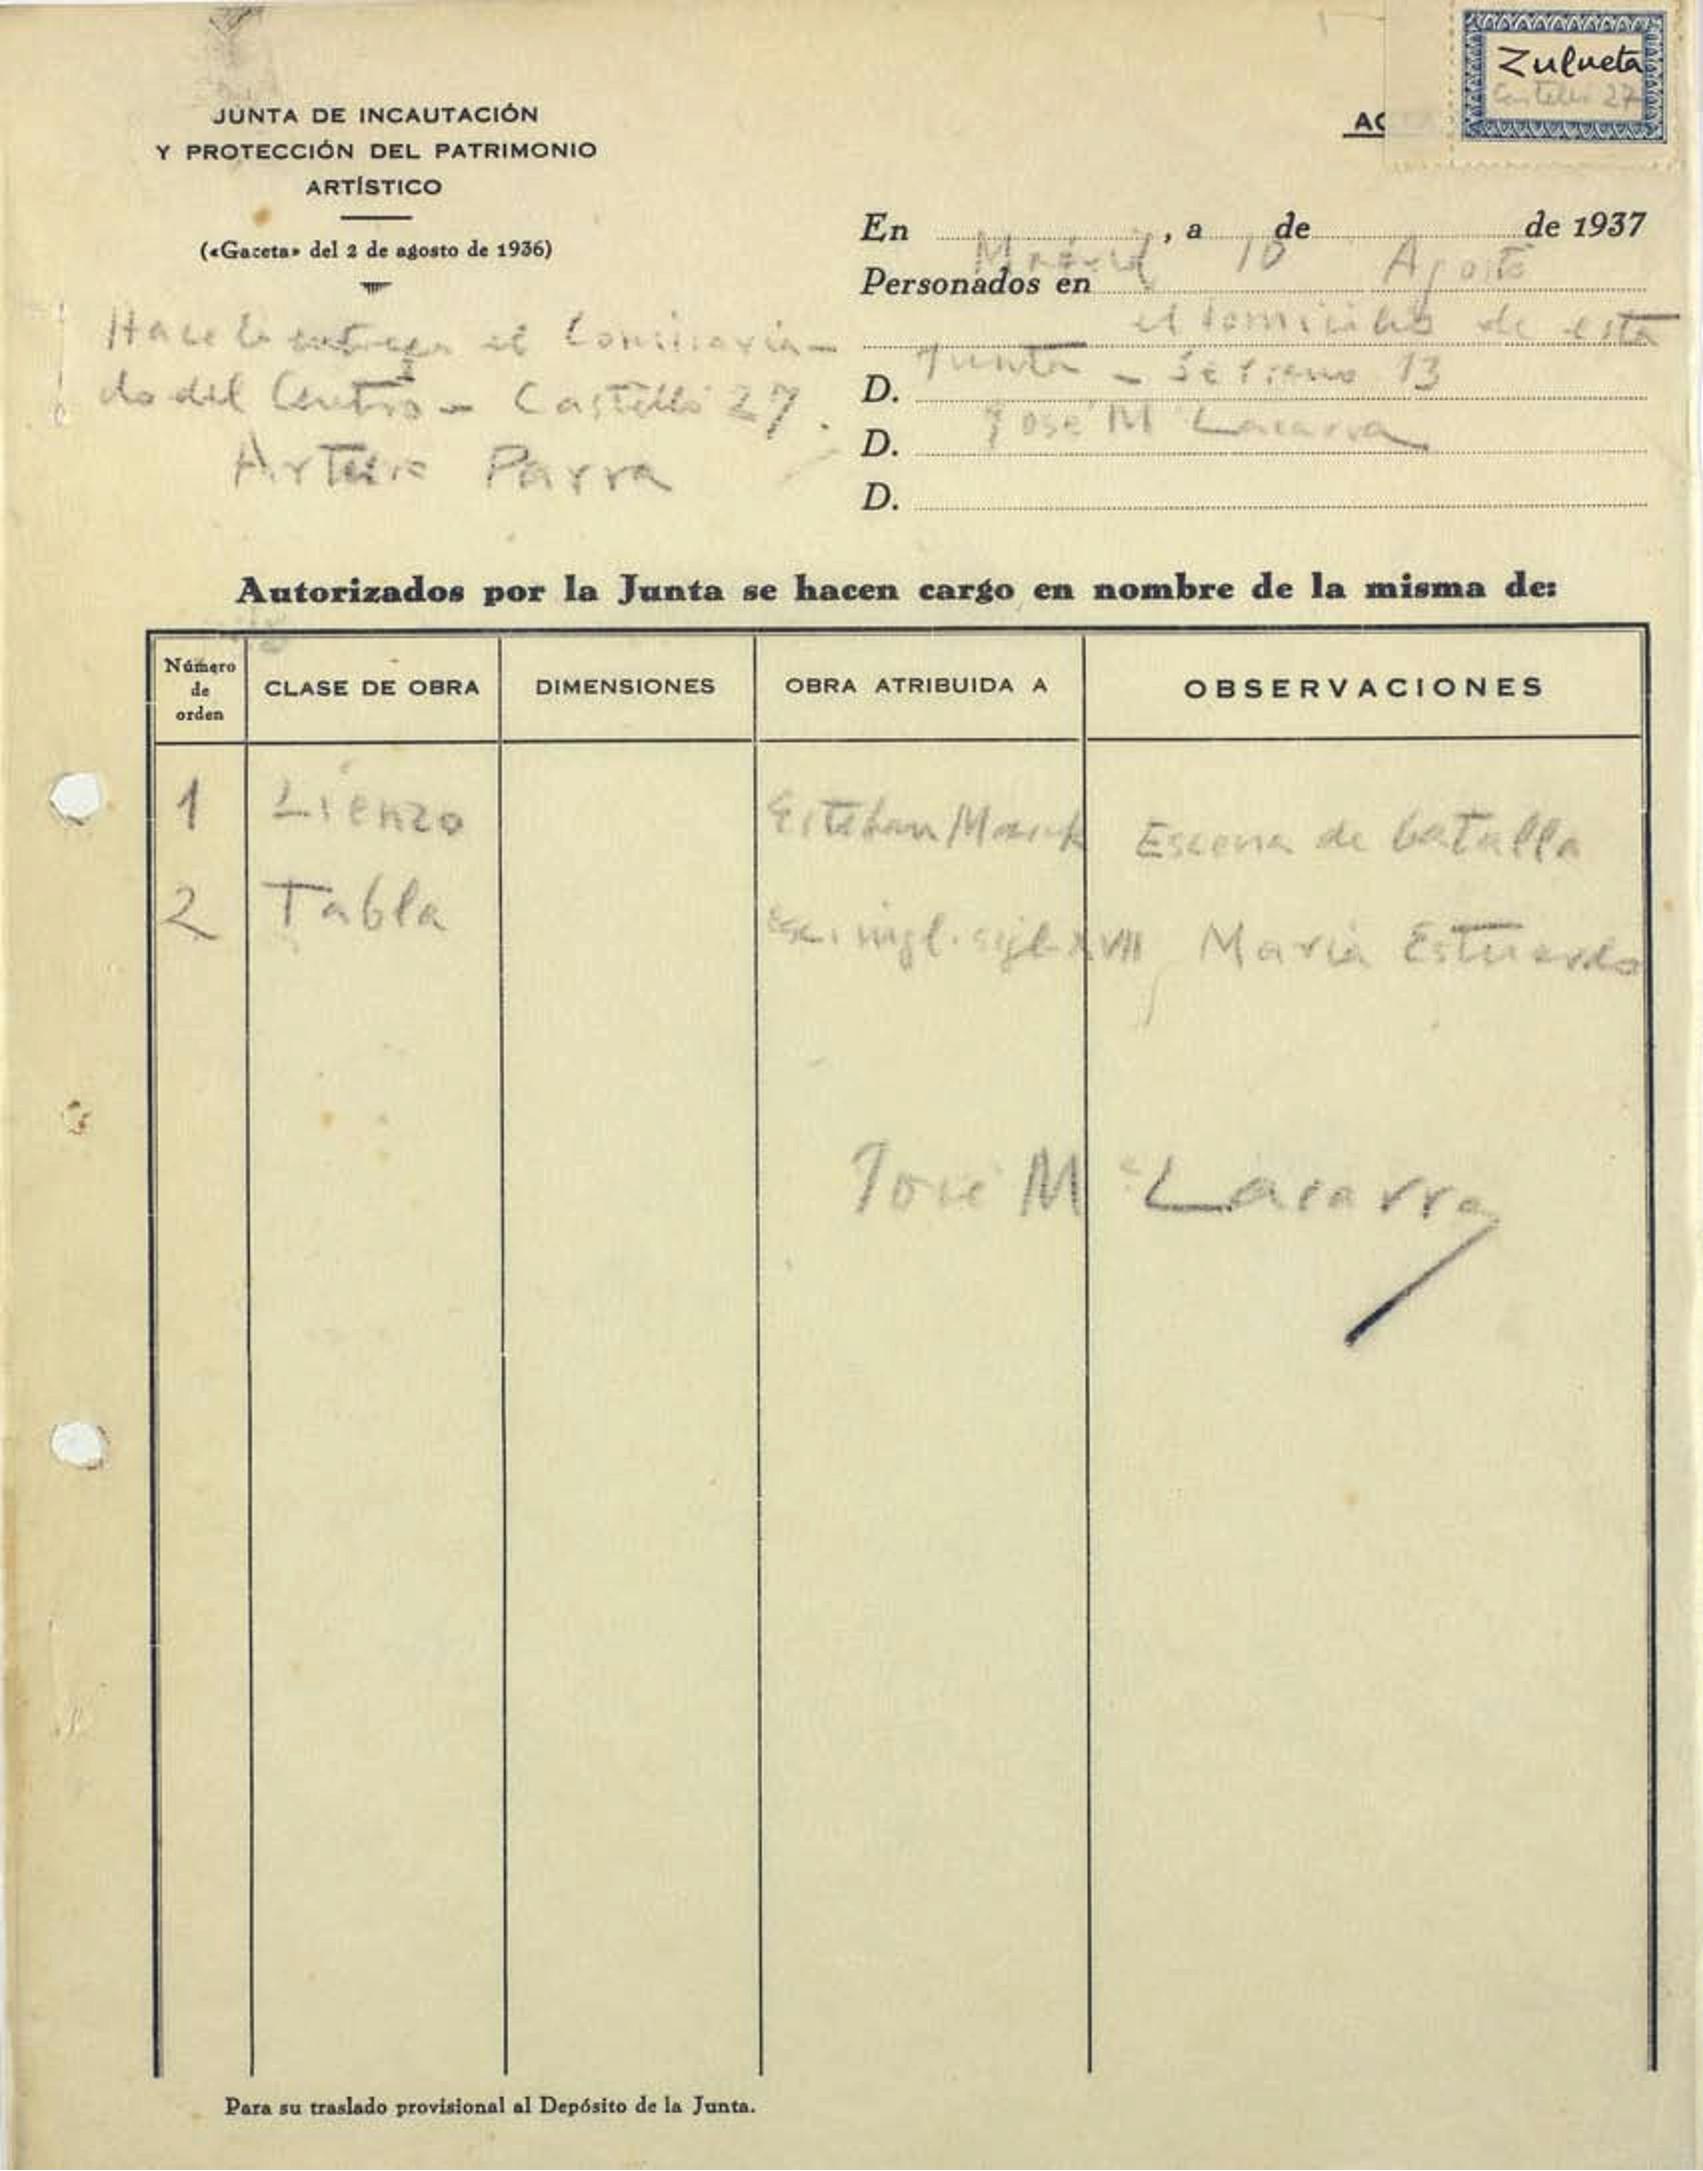 JUNTA DE INCAUTACIÓN
Y PROTECCIÓN DEL PATRIMONIO
ARTÍSTICO
(«Gaceta» del 2 de agosto de 1936)
Hace la entrega el Comisaria-
do del Centro - Castelló 27.
Arturo Parra
Zulueta
Castelló 27
AC
En Madrid, a 10 de Agosto de 1937
Personados en el domicilio de esta
Junta - Serrano 13
D. José Mª Lacarra
D.
D.
Autorizados por la Junta se hacen cargo en nombre de la misma de:
Número de orden CLASE DE OBRA DIMENSIONES OBRA ATRIBUIDA A OBSERVACIONES
1 Lienzo Esteban March Escena de batalla
2 Tabla Esc. ingl. sigl. XVII María Estuardo
José Mª Lacarra
Para su traslado provisional al Depósito de la Junta.